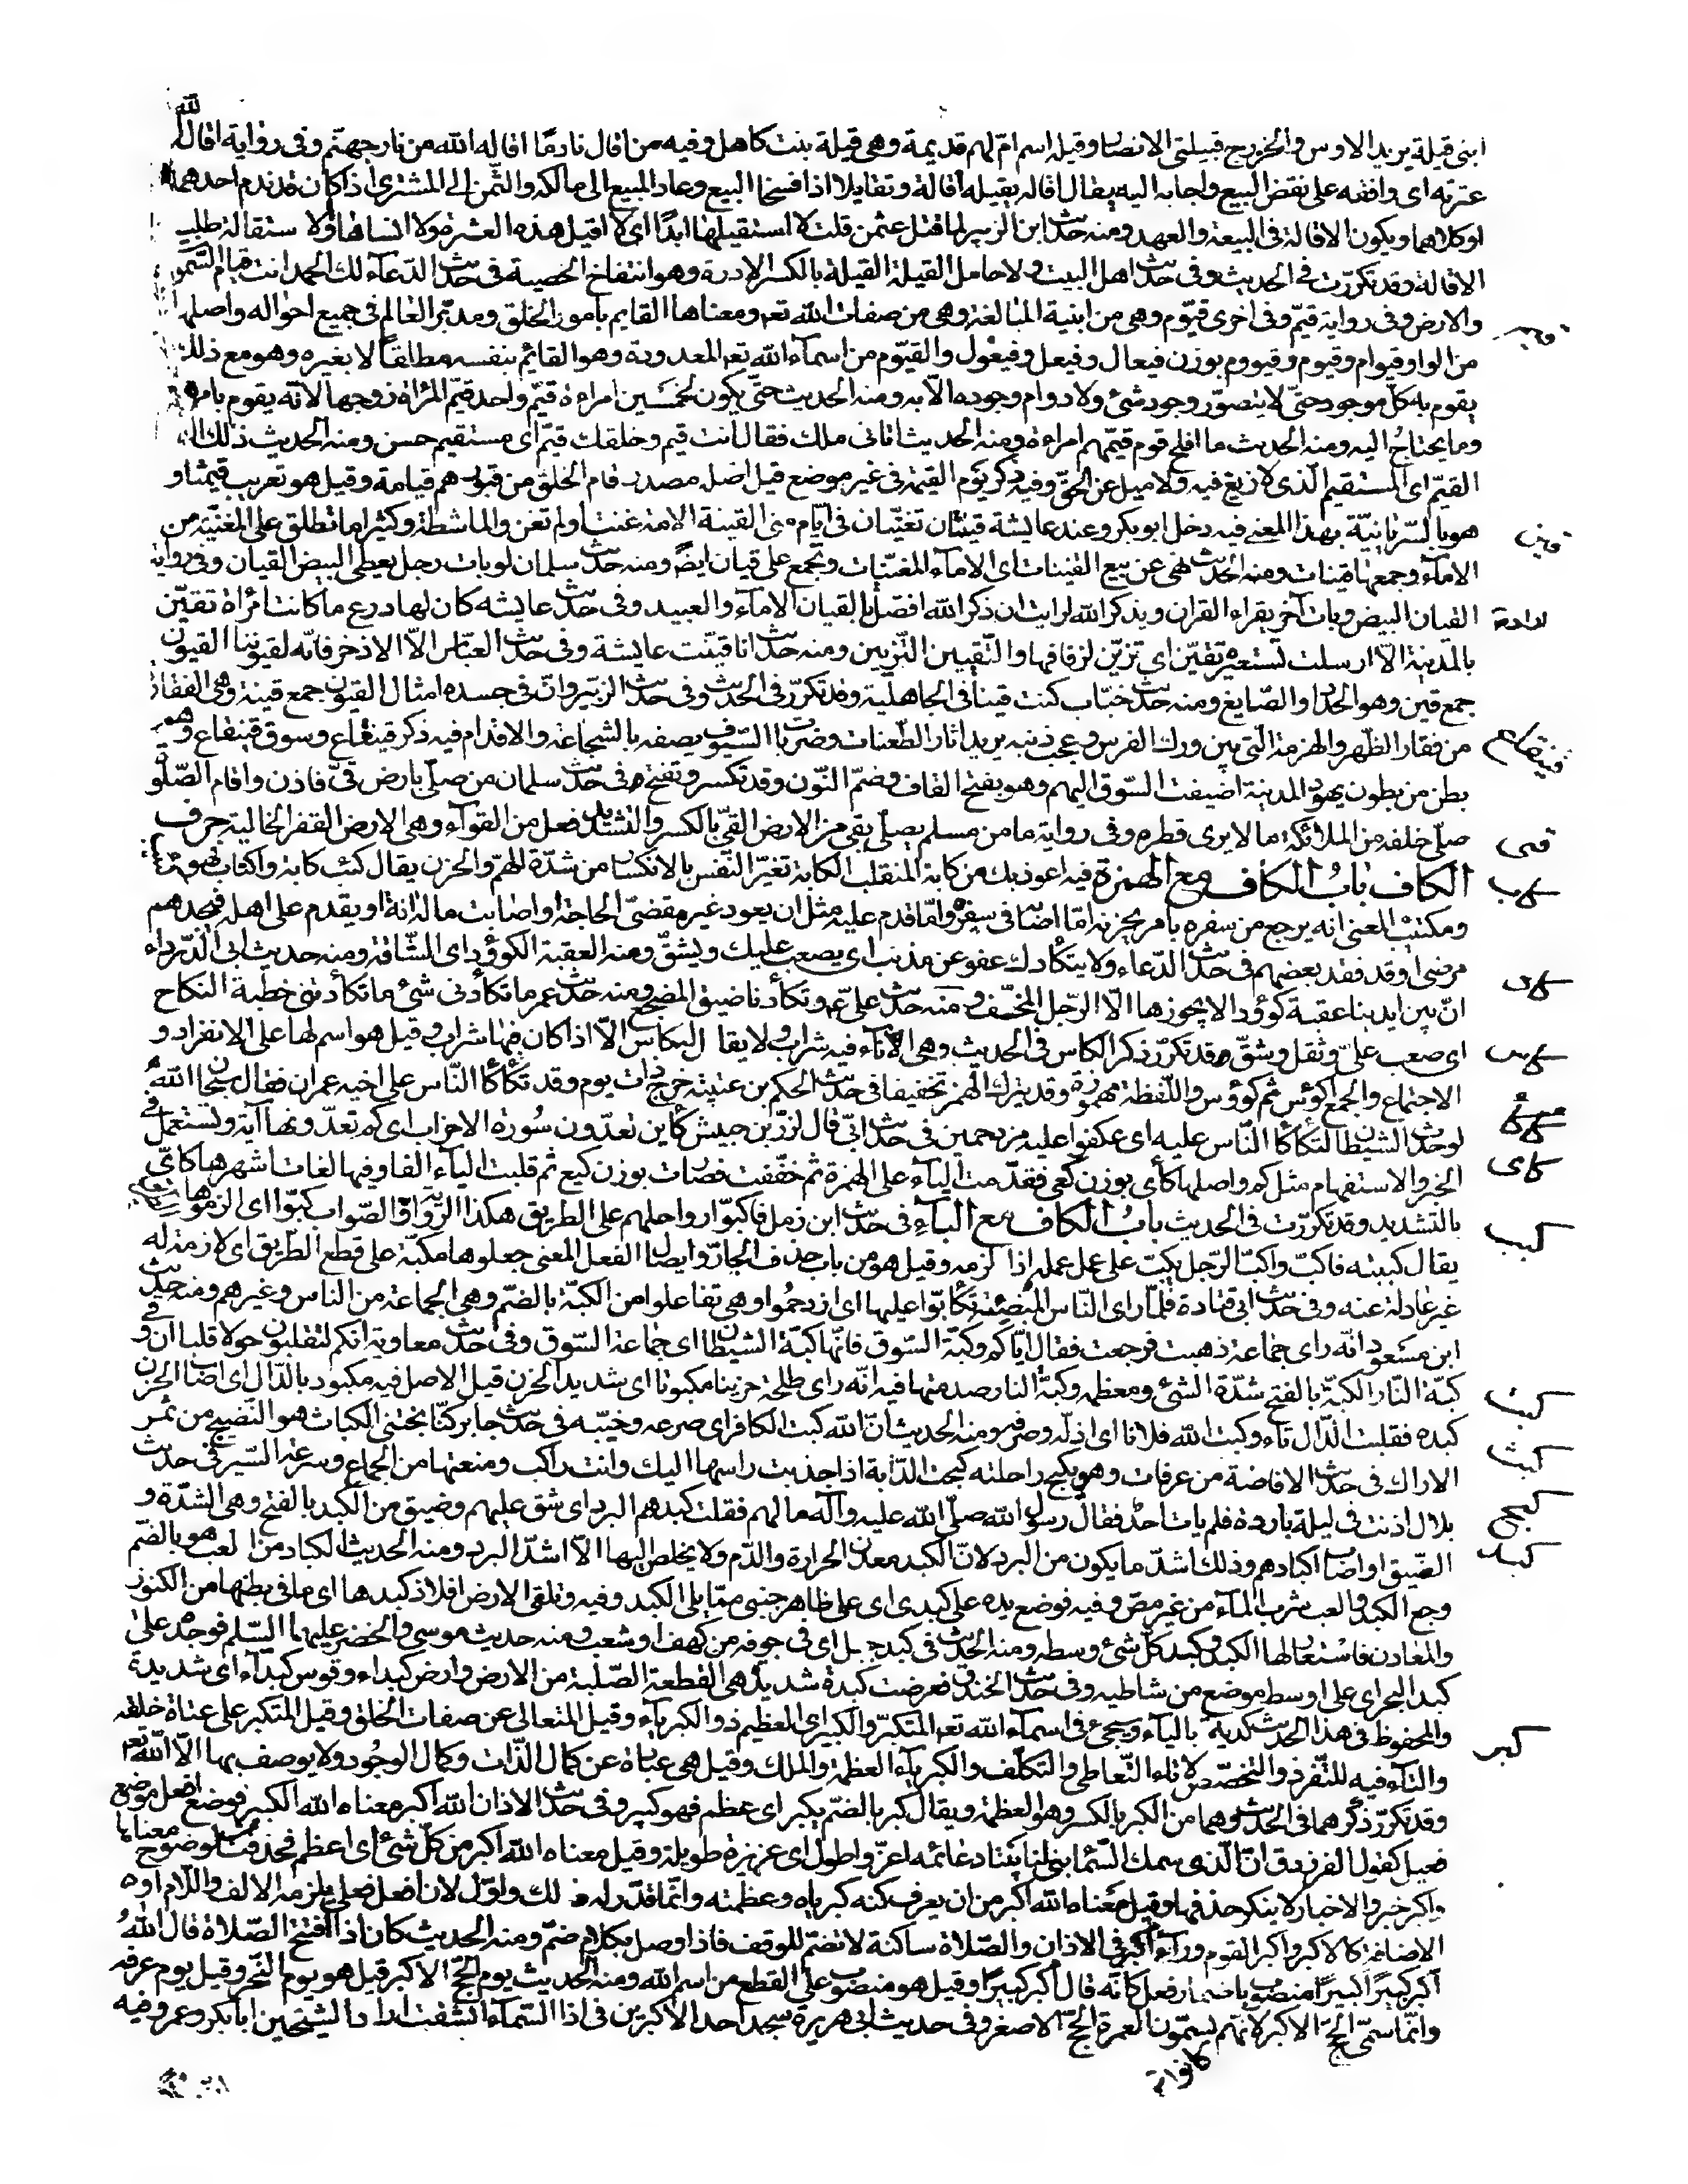 ابنی قیلة یرید الاوس والخزرج قبیلتی الانصار وقیلة اسم امّ لهم قدیمة وهی قیلة بنت کاهل وفیه من اقال نادمًا اقاله الله من نار جهنّم وفی روایة اقال الله
عثرته ای وافقه علی نقض البیع واجابه الیه یقال اقاله یقیله اقالة وتقایلا اذا فسخا البیع وعاد المبیع الی مالکه والثّمن الی المشتری اذا کان قد ندم احدهما
اوکلاهما ویکون الاقالة فی البیعة والعهد ومنه حدیث ابن الزبیر لما قتل عثمن قلت لا استقیلها ابدًا ای لا اقیل هذه العثرة ولا انساها ولا ستقالة طلب
الاقالة وقد تکرّرت فی الحدیث وفی حدیث اهل البیت ولا حامل القیلة القیلة بالکسر الادرة وهو انتفاخ الخصیة فی حدیث الدّعآء لك الحمد انت قیام السّموات
والارض وفی روایة قیّم وفی اخری قیّوم وهی من ابنیة المبالغة وهی من صفات الله تعه ومعناها القایم بامور الخلق ومدبّر العالم فی جمیع احواله واصلها
من الواو قیوام وقیوم وقیووم بوزن فیعال وفیعل وفیعول والقیّوم من اسمآء الله تعه المعدودة وهو القائم بنفسه مطلقًا لا بغیره وهو مع ذلك
یقوم به کلّ موجود حتّی لا یتصوّر وجود شئ ولا دوام وجوده الّا به ومنه الحدیث حتّی یکون لخمسین امراءة قیّم واحد قیّم المراة زوجها لانّه یقوم بامرها
وما یحتاج الیه ومنه الحدیث ما افلح قوم قیّمهم امراءة ومنه الحدیث اتانی ملك فقال انت قیم وخلقك قیّم ای مستقیم حسن ومنه الحدیث ذلك الدین
القیّم ای المستقیم الّذی لا زیغ فیه ولا میل عن الحقّ وفیه ذکر یوم القیمة فی غیر موضع قیل اصله مصدر قام الخلق من قبورهم قیامة وقیل هو تعریب قیمثا و
هو بالسّریانیّة بهذا المعنی فیه دخل ابوبکر وعند عایشة قینتان تغنّیان فی ایّام منی القینة الامة غنّت او لم تغن والماشطة وکثیرا ما تطلق علی المغنّیة من
الامآء وجمعها قینات ومنه الحدیث نهی عن بیع القینات ای الامآء المغنّیات وتجمع علی قیان ایضًا ومنه حدیث سلمان لو بات رجل یعطی البیض القیان وفی روایة
القیان البیض وبات آخر یقراء القران ویذکر الله لرایت ان ذکر الله افضل القیان الامآء والعبید وفی حدیث عایشه کان لها درع ما کانت امراة تقیّن
بالمدینة الّا ارسلت تستعیره تقیّن ای تزیّن لزفافها والتّقیین التّزیین ومنه حدیث انا قیّنت عایشة وفی حدیث العبّاس الّا الاذخر فانّه لقیوننا القیون
جمع قین وهو الحدّاد والصّایغ ومنه حدیث خبّاب کنت قینا فی الجاهلیّة وقد تکرّر فی الحدیث وفی حدیث الزبیر وانّ فی جسده امثال القیون جمع قینة وهی الفقارة
من فقار الظّهر والهزمة الّتی بین ورك الفرس وعجب ذنبه یرید اثار الطّعنات وضربات السّیوف یصفه بالشّجاعة والاقدام فیه ذکر قینقاع وسوق قینقاع وهو
بطن من بطون یهود المدینة اضیفت السّوق الیهم وهو بفتح القاف وضمّ النّون وقد تکسر وتفتح فی حدیث سلمان من صلّی بارض قیّ فاذن واقام الصّلوة
صلّی خلفه من الملائکة ما لا یری قطره وفی روایة ما من مسلم یصلّی بقی من الارض القیّ بالکسر والتّشدید فعل من القوآء وهی الارض القفر الخالیة حرف
الکاف باب الکاف مع الهمزة فیه اعوذ بك من کابة المنقلب الکابة تغیّر النّفس بالانکسار من شدّة الهمّ والحزن یقال کئب کابة واکتاب فهو
ومکتئب المعنی انه یرجع من سفره بامر یحزنه امّا اصابه فی سفره وامّا قدم علیه مثل ان یعود غیر مقضیّ الحاجة او اصابت ماله آفة او یقدم علی اهله فیجدهم
مرضی او قد فقد بعضهم فی حدیث الدّعاء ولا یتکأدك عفو عن مذنب ای یصعب علیك ویشقّ ومنه العقبة الکؤود ای المشّاقة ومنه حدیث ابی الدّرداء
انّ بین ایدینا عقبة کؤودا لا یجوزها الّا الرّجل المخفّ ومنه حدیث علیّ ع وتکأدنا ضیق المضجع ومنه حدیث عمر ما تکأدنی شئ ما تکأدتنی خطبة النکاح
ای صعب علیّ وثقل وشقّ قد تکرّر ذکر الکاس فی الحدیث وهی الانآء فیه شراب ولا یقال لها کاس الّا اذا کان فیها شراب وقیل هو اسم لها علی الانفراد و
الاجتماع والجمع اکؤس ثم کؤوس واللّفظة مهموزة وقد یترك الهمز تخفیفا فی حدیث الحکم بن عتیبة خرج ذات یوم وقد تکأکأ النّاس علی اخیه عمران فقال سبحان الله
لو حدث الشیطان لتکأکأ النّاس علیه ای عکفوا علیه مزدحمین فی حدیث ابیّ قال لزرّ بن حبیش کأین تعدّون سورة الاحزاب ای کم تعدّونها آیة وتستعمل فی
الخبر والاستفهام مثل کم واصلها کأی بوزن کعی فقدّمت الیآء علی الهمزة ثم خفّفت فصارت بوزن کیع ثم قلبت الیآء الفا وفیها لغات اشهرها کأیّ
بالتشدید وقد تکرّرت فی الحدیث باب الکاف مع البآء فی حدیث ابن زمل فاکبّوا رواحلهم علی الطریق هکذا الرّوایة والصّواب کبّوا ای الزموها
یقال کببته فاکبّ واکبّ الرّجل یکبّ علی عمل عمله اذا لزمه وقیل هو من باب حذف الجارّ وایصال الفعل المعنی جعلوها مکبّة علی قطع الطّریق ای لازمة له
غیر عادلة عنه وفی حدیث ابی قتادة فلمّا رای النّاس المیضئة تکابّوا علیها ای ازدحموا وهی تفاعلوا من الکبّة بالضّم وهی الجماعة من الناس وغیرهم ومنه حدیث
ابن مسعود انّه رای جماعة ذهبت فرجعت فقال ایّاکم وکبّة السّوق فانّها کبّة الشیطان ای جماعة السّوق وفی حدیث معاویة انکم لتقلبون حولا قلبا ان وقی
کبّة النّار الکبّة بالفتح شدّة الشئ ومعظمه وکبّة النار صدمتها فیه انّه رای طلحة حزینا مکبوتا ای شدید الحزن قیل الاصل فیه مکبود بالدّال ای اصاب الحزن
کبده فقلبت الدّال تاء وکبت الله فلانا ای اذلّه وصرفه ومنه الحدیث انّ الله کبت الکافر ای صرعه وخیّبه فی حدیث جابر کنّا نجتنی الکباث هو النّضیج من ثمر
الاراك فی حدیث الافاضة من عرفات وهو یکبح راحلته کبحت الدّابة اذا جذبت راسها الیك وانت راکب ومنعتها من الجماح وسرعة السّیر فی حدیث
بلال اذنت فی لیلة باردة فلم یات احد فقال رسول الله صلّی الله علیه وآله ما لهم فقلت کبدهم البرد ای شقّ علیهم وضیق من الکبد بالفتح وهی الشّدّة و
الضّیق او اصاب اکبادهم وذلك اشدّ ما یکون من البرد لانّ الکبد معدن الحرارة والدّم ولا یخلص الیها الّا اشدّ البرد ومنه الحدیث الکباد من العب هو بالضّم
وجع الکبد والعب شرب المآء من غیر مصّ وفیه فوضع یده علی کبدی ای علی ظاهر جنبی ممّا یلی الکبد وفیه وتلقی الارض افلاذ کبدها ای ما فی بطنها من الکنوز
والمعادن فاستعار لها الکبد وکبد کلّ شئ وسطه ومنه الحدیث فی کبد جبل ای فی جوفه من کهف او شعب ومنه حدیث موسی والخضر علیهما السّلم فوجده علی
کبد البحر ای علی اوسط موضع من شاطیه وفی حدیث الخندق فعرضت کبدة شدیدة هی القطعة الصّلبة من الارض وارض کبداء وقوس کبدآء ای شدیدة
والمحفوظ فی هذا الحدیث کدیة بالیآء وسیجئ فی اسمآء الله تعه المتکبّر والکبیر ای العظیم ذو الکبریآء وقیل المتعالی عن صفات الخلق وقیل المتکبر علی عتاة خلقه
والتآء فیه للتّفرّد والتخصّص لا تاء التّعاطی والتکلّف والکبریآء العظمة والملك وقیل هی عبارة عن کمال الذّات وکمال الوجود ولا یوصف بها الّا الله تعه
وقد تکرّر ذکرهما فی الحدیث وهما من الکبر بالکسر وهو العظمة ویقال کبر بالضّم یکبر ای عظم فهو کبیر وفی حدیث الاذان الله اکبر معناه الله الکبیر فوضع افعل موضع
فعیل کقول الفرزدق انّ الّذی سمك السّمآ بنی لنا بیتا دعائمه اعزّ واطول ای عزیزة طویلة وقیل معناه الله اکبر من کلّ شئ ای اعظم فحذفت لوضوح معناها
واکبر خبر والاخبار لا ینکر حذفها وقیل معناه الله اکبر من ان یعرف کنه کبریاه وعظمته وانّما قدّر له ذلك واوّل لان افعل فعلی یلزمه الالف واللّام او
الاضافة کالاکبر واکبر القوم وراء اکبر فی الاذان والصّلاة ساکنة لا تضمّ للوقف فاذا وصل بکلام ضمّ ومنه الحدیث کان اذا افتتح الصّلاة قال الله
اکبر کبیرًا کبیرًا منصوب باضمار فعل کانّه قال اکبر کبیرًا وقیل هو منصوب علی القطع من اسم الله ومنه الحدیث یوم الحجّ الاکبر قیل هو یوم النّحر وقیل یوم عرفة
وانّما سمّی الحجّ الاکبر لانّهم یسمّون العمرة الحجّ الاصغر وفی حدیث ابی هریرة سجد احد الاکبرین فی اذا السّمآء انشقت اراد الشیخین ابابکر وعمر وفیه
قین
قینقاع
قی
کاب
کاد
کاس
کاکا
کای
کبب
کبت
کبث
کبح
کبد
کبر